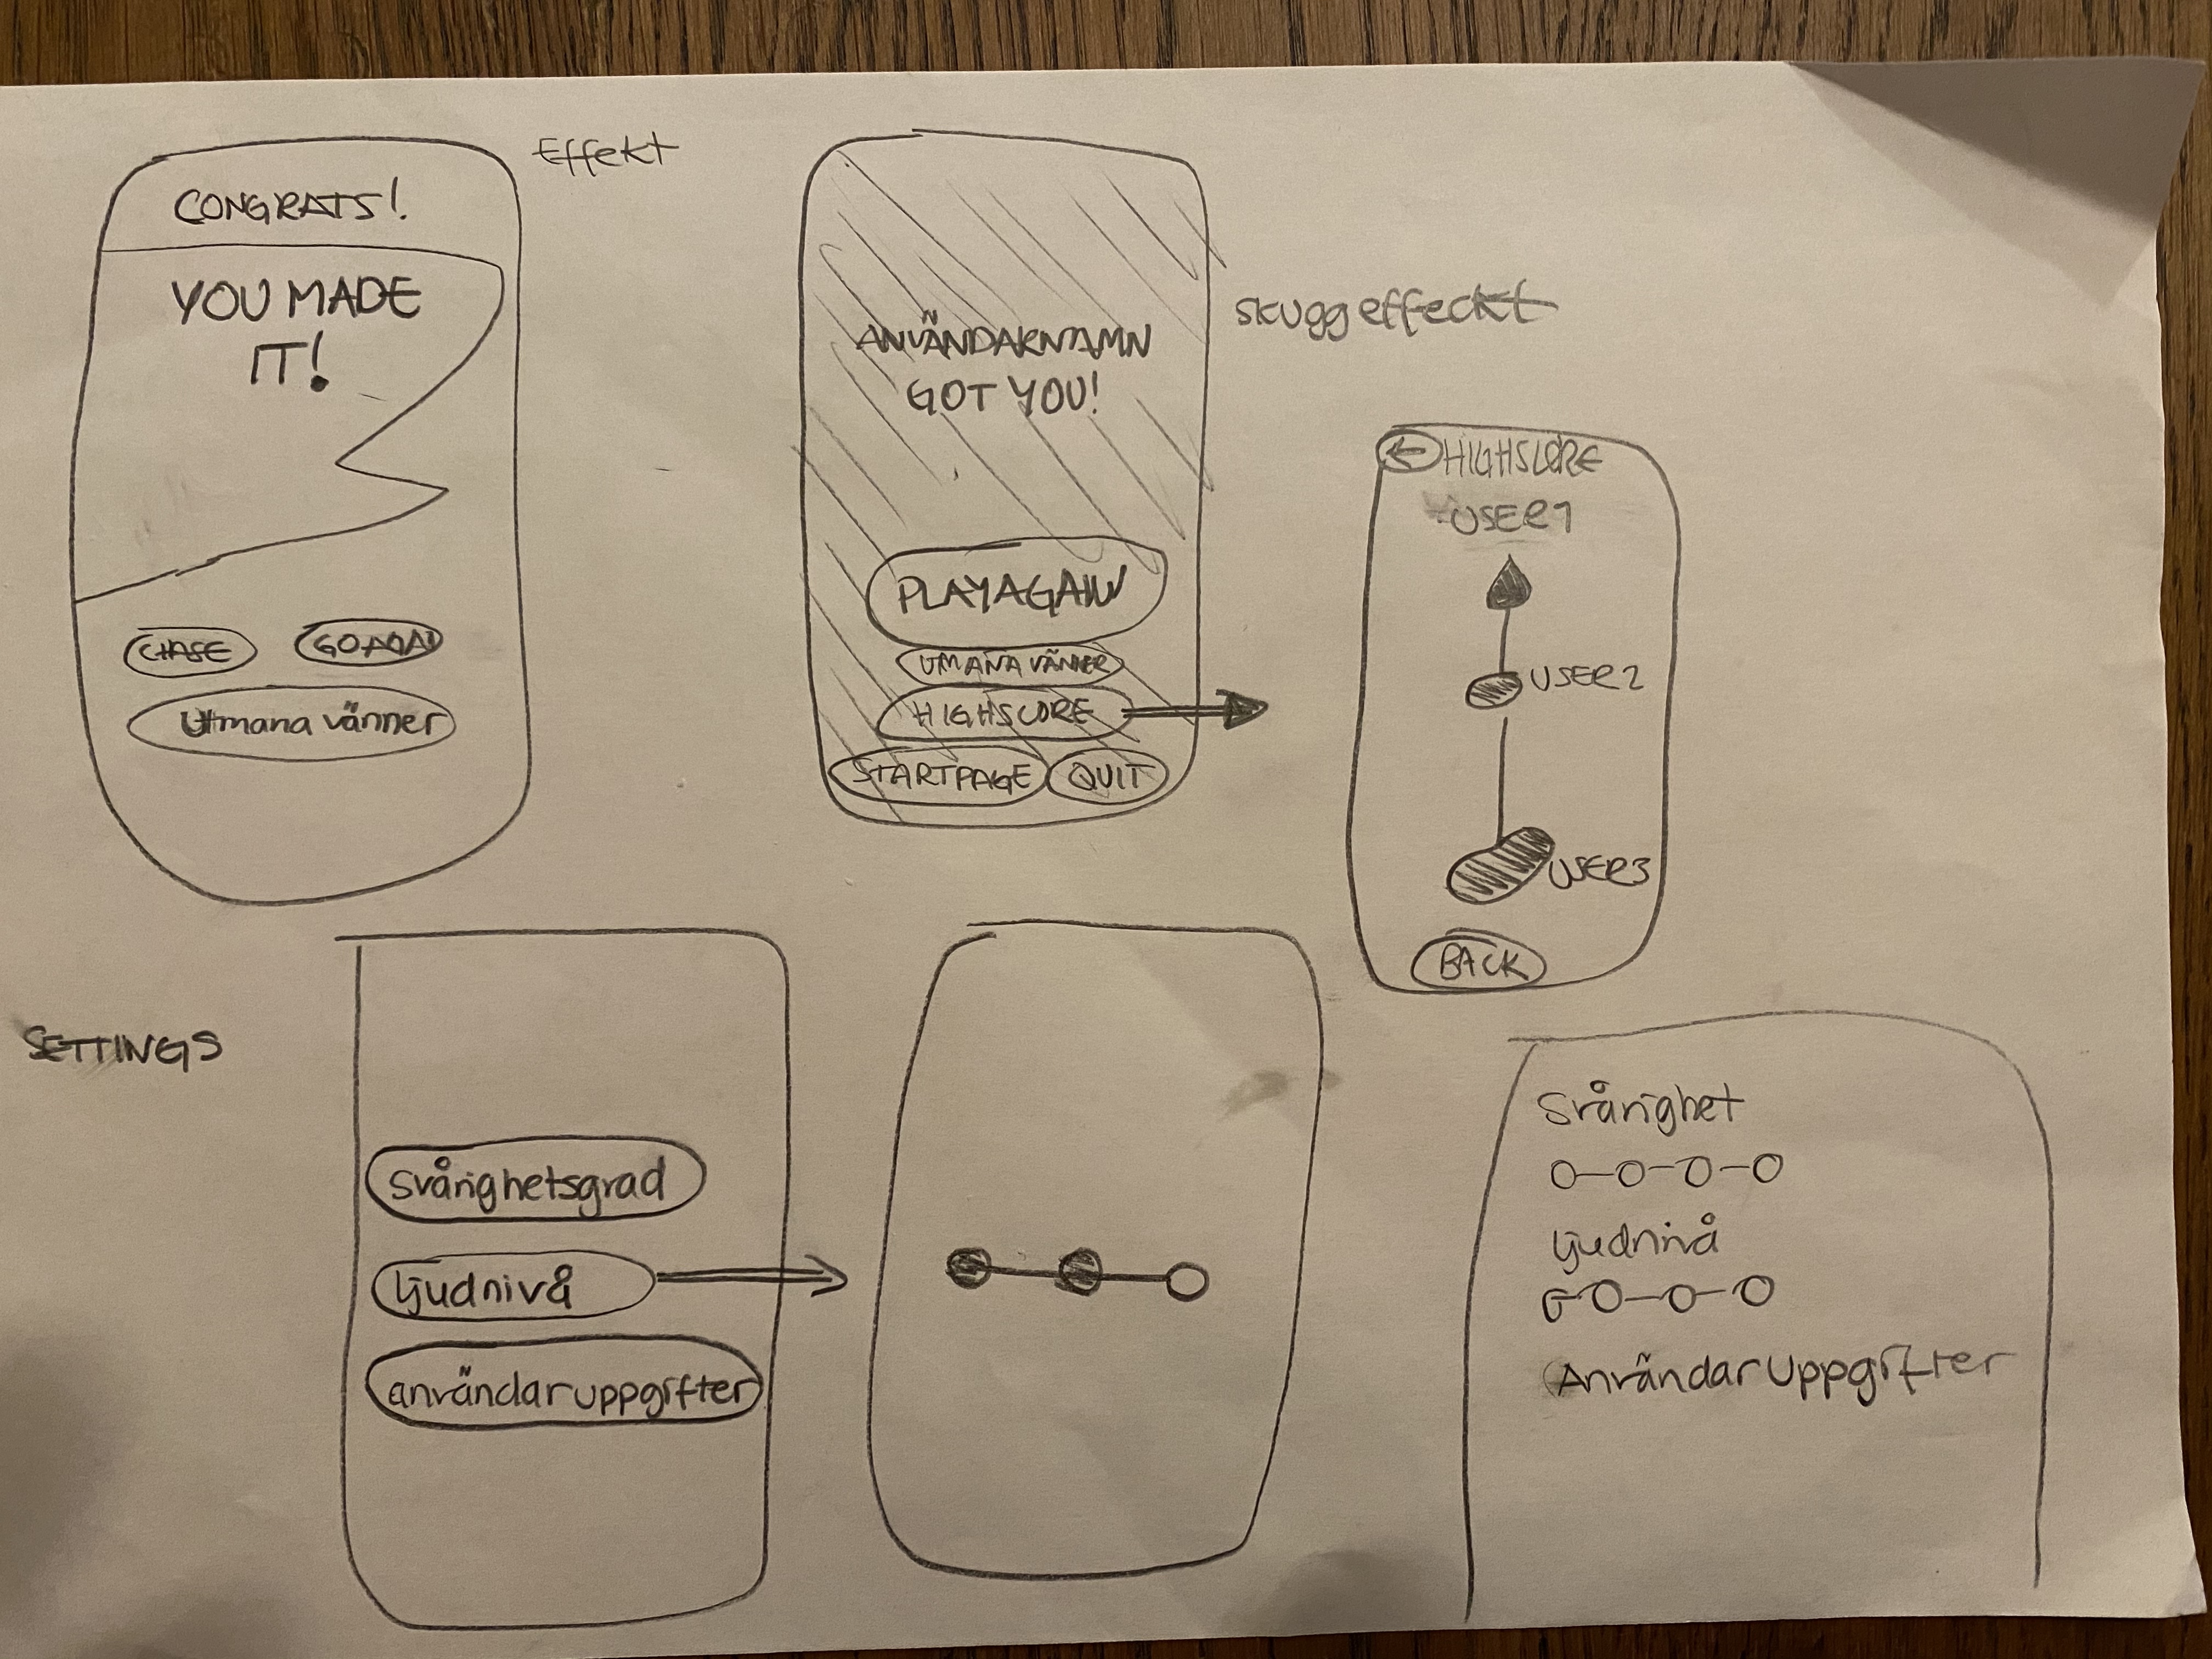 Effekt
CONGRATS!
YOU MADE
IT!
CHASE
Utmana vänner
ANVÄNDARNAMN
GOT YOU!
skuggeffeckt
PLAYAGAIN
UTMANA VÄNNER
HIGHSCORE
STARTPAGE
QUIT
HIGHSCORE
USER1
USER2
USER3
BACK
SETTINGS
Svårighetsgrad
ljudnivå
användaruppgifter
Svårighet
ljudnivå
Användaruppgifter